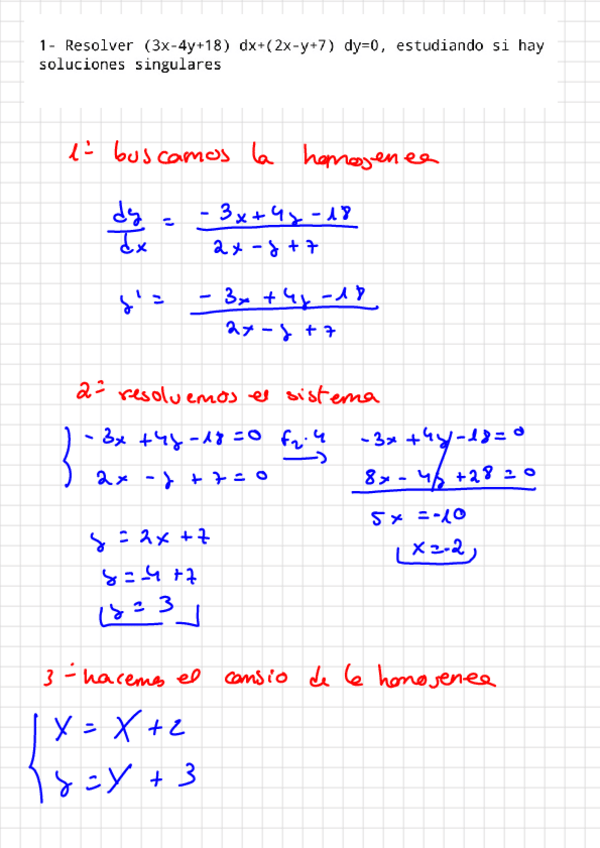 1- Resolver (3x-4y+18) dx+(2x-y+7) dy=0, estudiando si hay
soluciones singulares
1º- buscamos la homogenea
dy/dx = (-3x+4y-18)/(2x-y+7)
y' = (-3x+4y-18)/(2x-y+7)
2º- resolvemos el sistema
{ -3x+4y-18=0 F₂·4 → -3x+4y-18=0
2x-y+7=0 8x-4y+28=0
5x=-10
y=2x+7 x=-2
y=-4+7
y=3
3- hacemos el cambio de la homogenea
{ x = X+2
y = Y+3